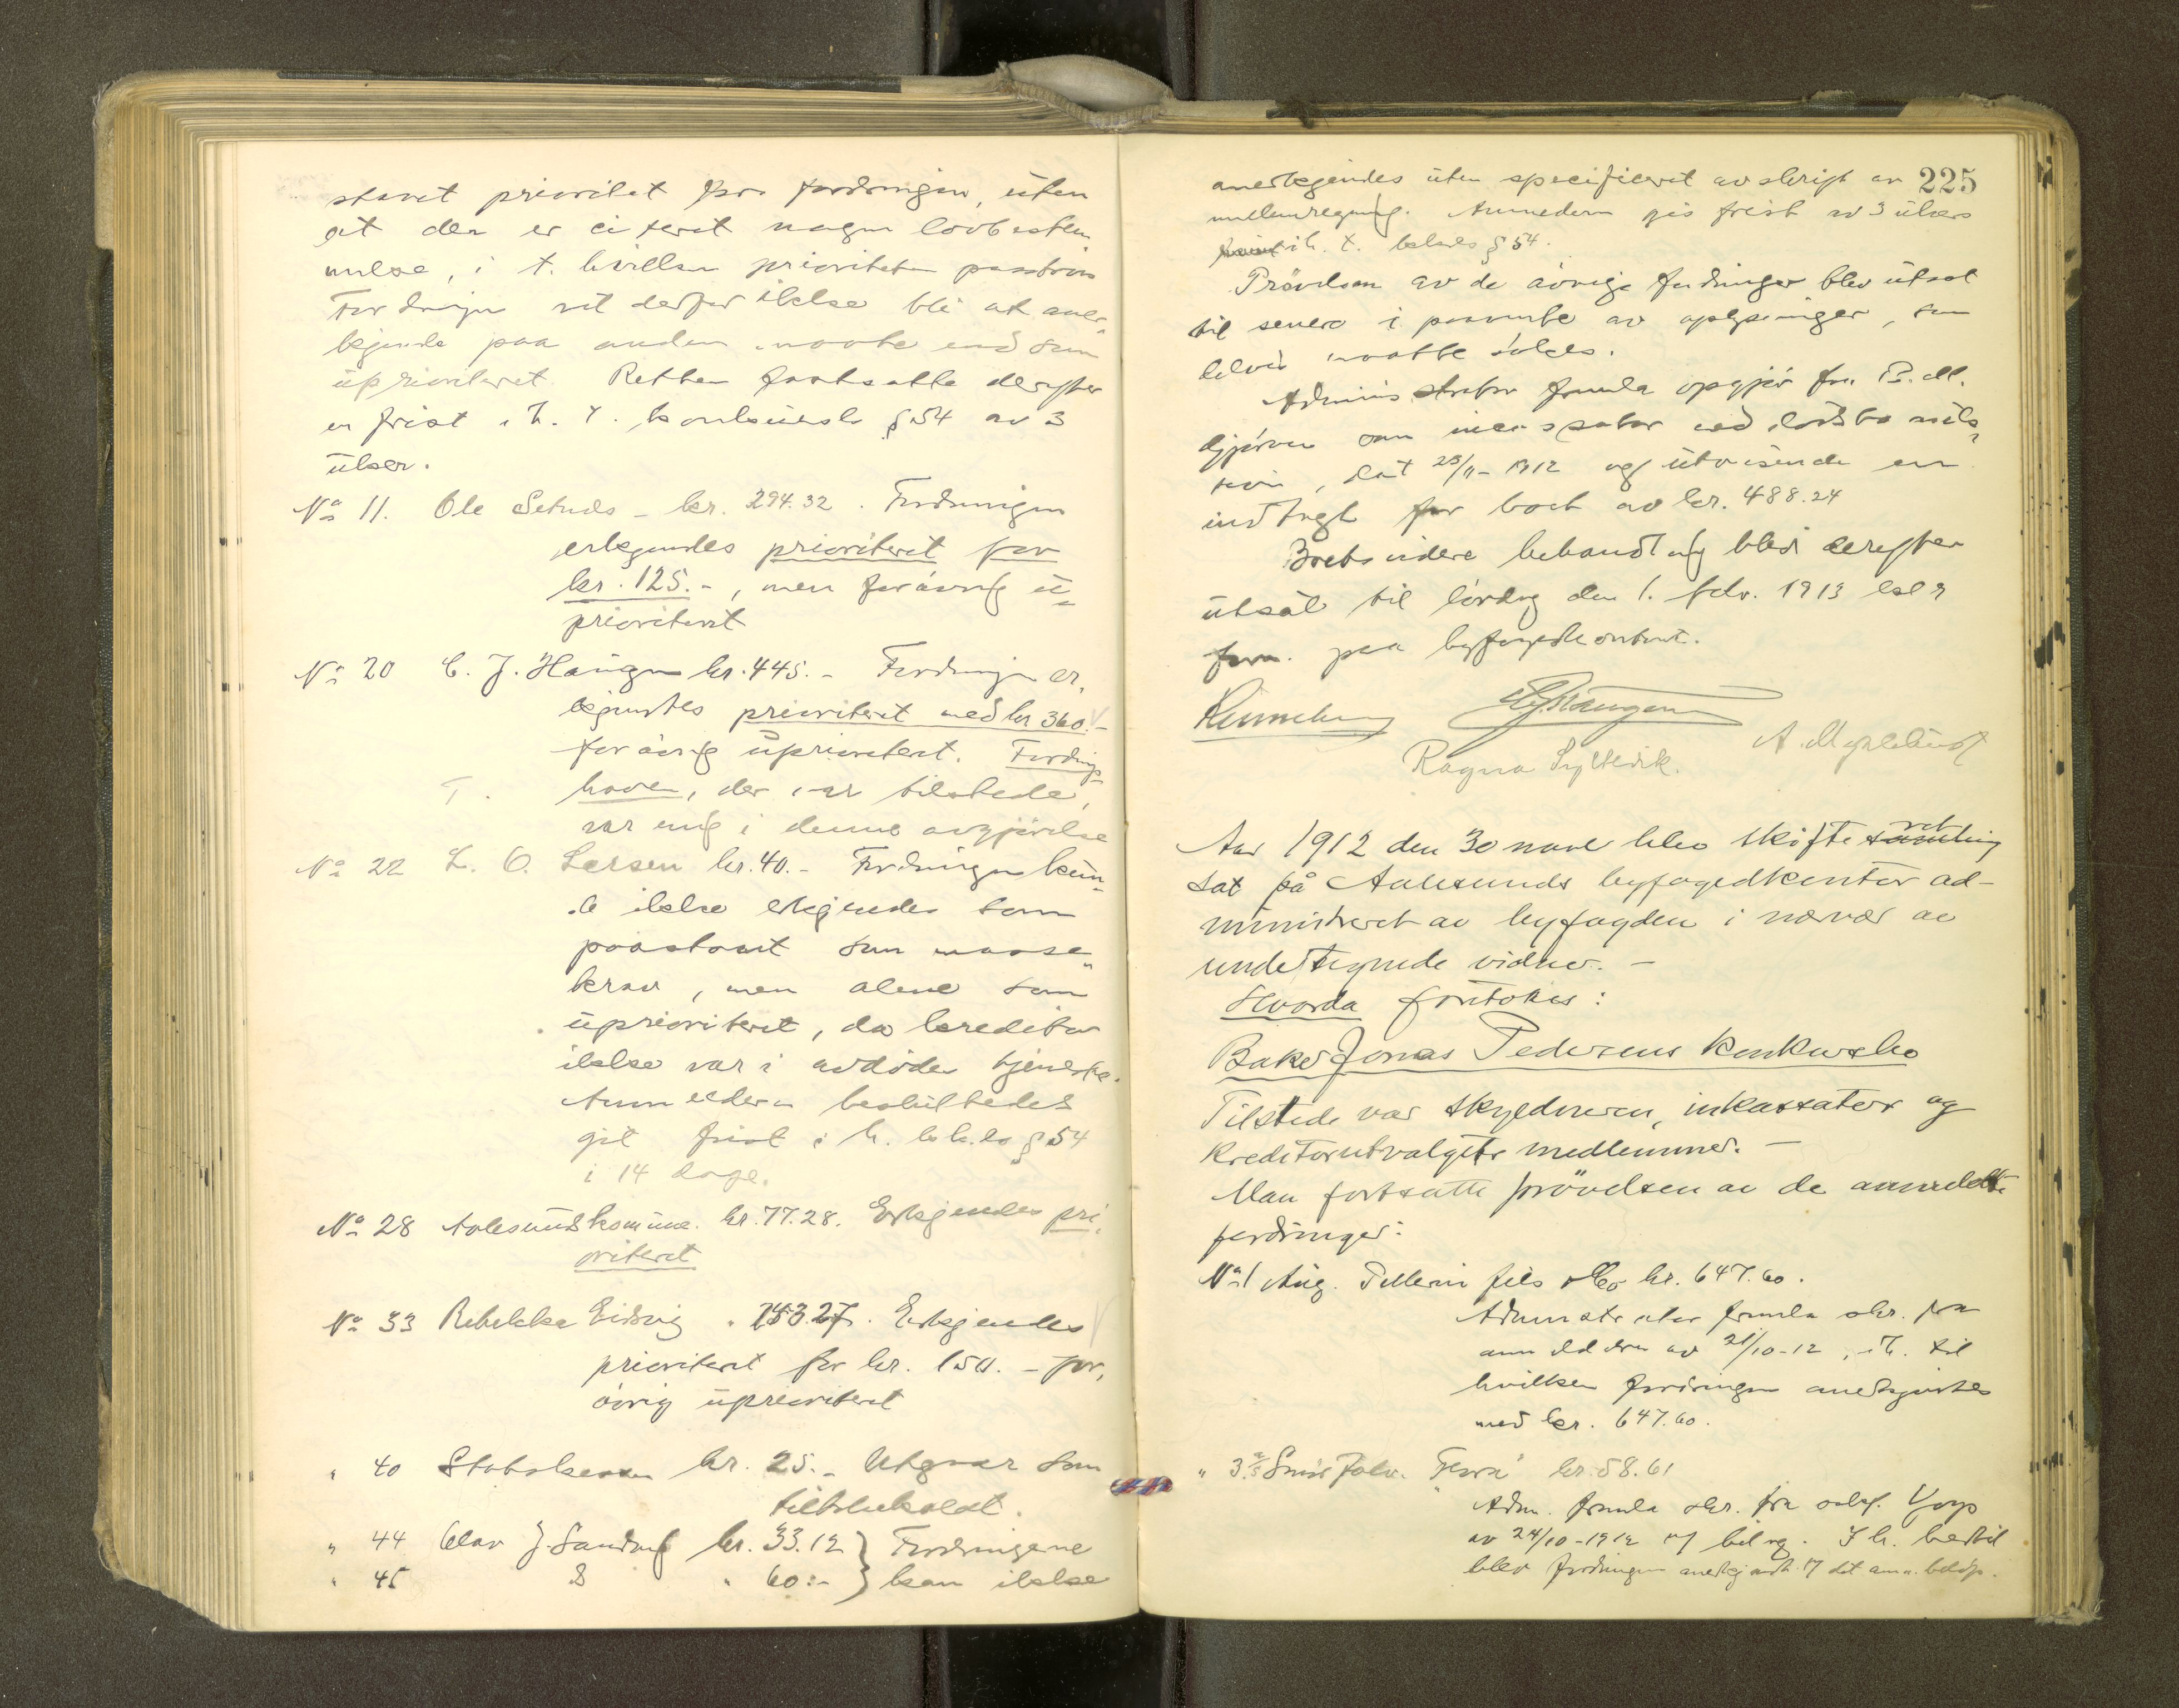 stavet prioritet for fordringen, uten
at der er citeret nogen lovbestem
melse, i t. hvilken prioriteten paastaaes
Fordringen vil derfor ikke bli at aner
kjende paa anden maate end som
uprioriteret. Retten fastsatte derefter
en frist i h. t. konkursl. § 54 av 3
uker.
No 11. Ole Setnes - kr. 294.32. Fordringen
erkjendes prioriteret for
kr. 125.-, men forøvrig u-
prioriteret
No 20 C. J. Haugen kr. 445.- Fordringen er,
kjendtes prioriteret med kr 360.-
forøvrig uprioritert. Fordrings-
haver, der var tilstede,
var enig i denne avgjørelse
No 22 L. O. Larsen kr. 40.- Fordringen kun-
de ikke erkjendes som
paastaat som masse-
krav, men alene som
uprioriteret, da kreditor
ikke var i avdødes tjeneste.
Anmelderen besluttedes
git frist i h. k.k.l. § 54
i 14 dage.
No 28 Aalesunds komune. kr. 77.28. Erkjendes pri-
oriteret
No 33 Rebekka Eidsvig " 253.27. Erkjendes
prioriteret for kr. 150.- for,
øvrig uprioriteret
" 40 Statskassen kr. 25.- Utgaar som
tilbakekaldt.
" 44 Olav J. Sandvig kr. 33.12 } Fordringene
" 45 " 60:- } kan ikke
225
anerkjendes uten specificeret avskrift av
mellemregning. Anmelderen gis frist av 3 ukers
i h. t. kklds § 54.
Prøvelsen av de øvrige fordringer blev utsat
til senere i paavente av oplysninger, som
delvis maatte søkes.
Administrator fremla opgjør fra P. M.
Gjærven om inkassator ved dødsbo auk-
sion, dat 25/11-1912 og utvisende en
indtægt for boet av kr. 488.24
Boets videre behandling blev derefter
utsat til lørdag den 1. febr. 1913 kl 9
form. paa byfogedkontoret.
C. J. Haugen
Ragna Syltevik. A. Myklebust
Aar 1912 den 30 nove blev skifteret samling
sat på Aalesunds byfogedkontor ad-
ministreret av byfogden i nærvær av
undertegnede vidner. -
Hvorda foretokes:
Baker Jonas Pedersens konkursbo
Tilstede var skyldneren, inkassator og
kreditorutvalgets medlemmer. -
Man fortsatte prøvelsen av de anmeldte
fordringer:
No 1 Aug. Pellerin fils & Co kr. 647.60.
Administrator fremla skr. fra
anmelderen av 21/10-12, i h. til
hvilken fordringen anerkjendtes
med kr. 647.60.
" 3 Smørfabr. "Flora" kr. 58.61
Adm. fremla skr. fra
av 24/10-1912 m/ bilag. I h. hertil
blev fordringen anerkjendt m/ det anm. beløp.